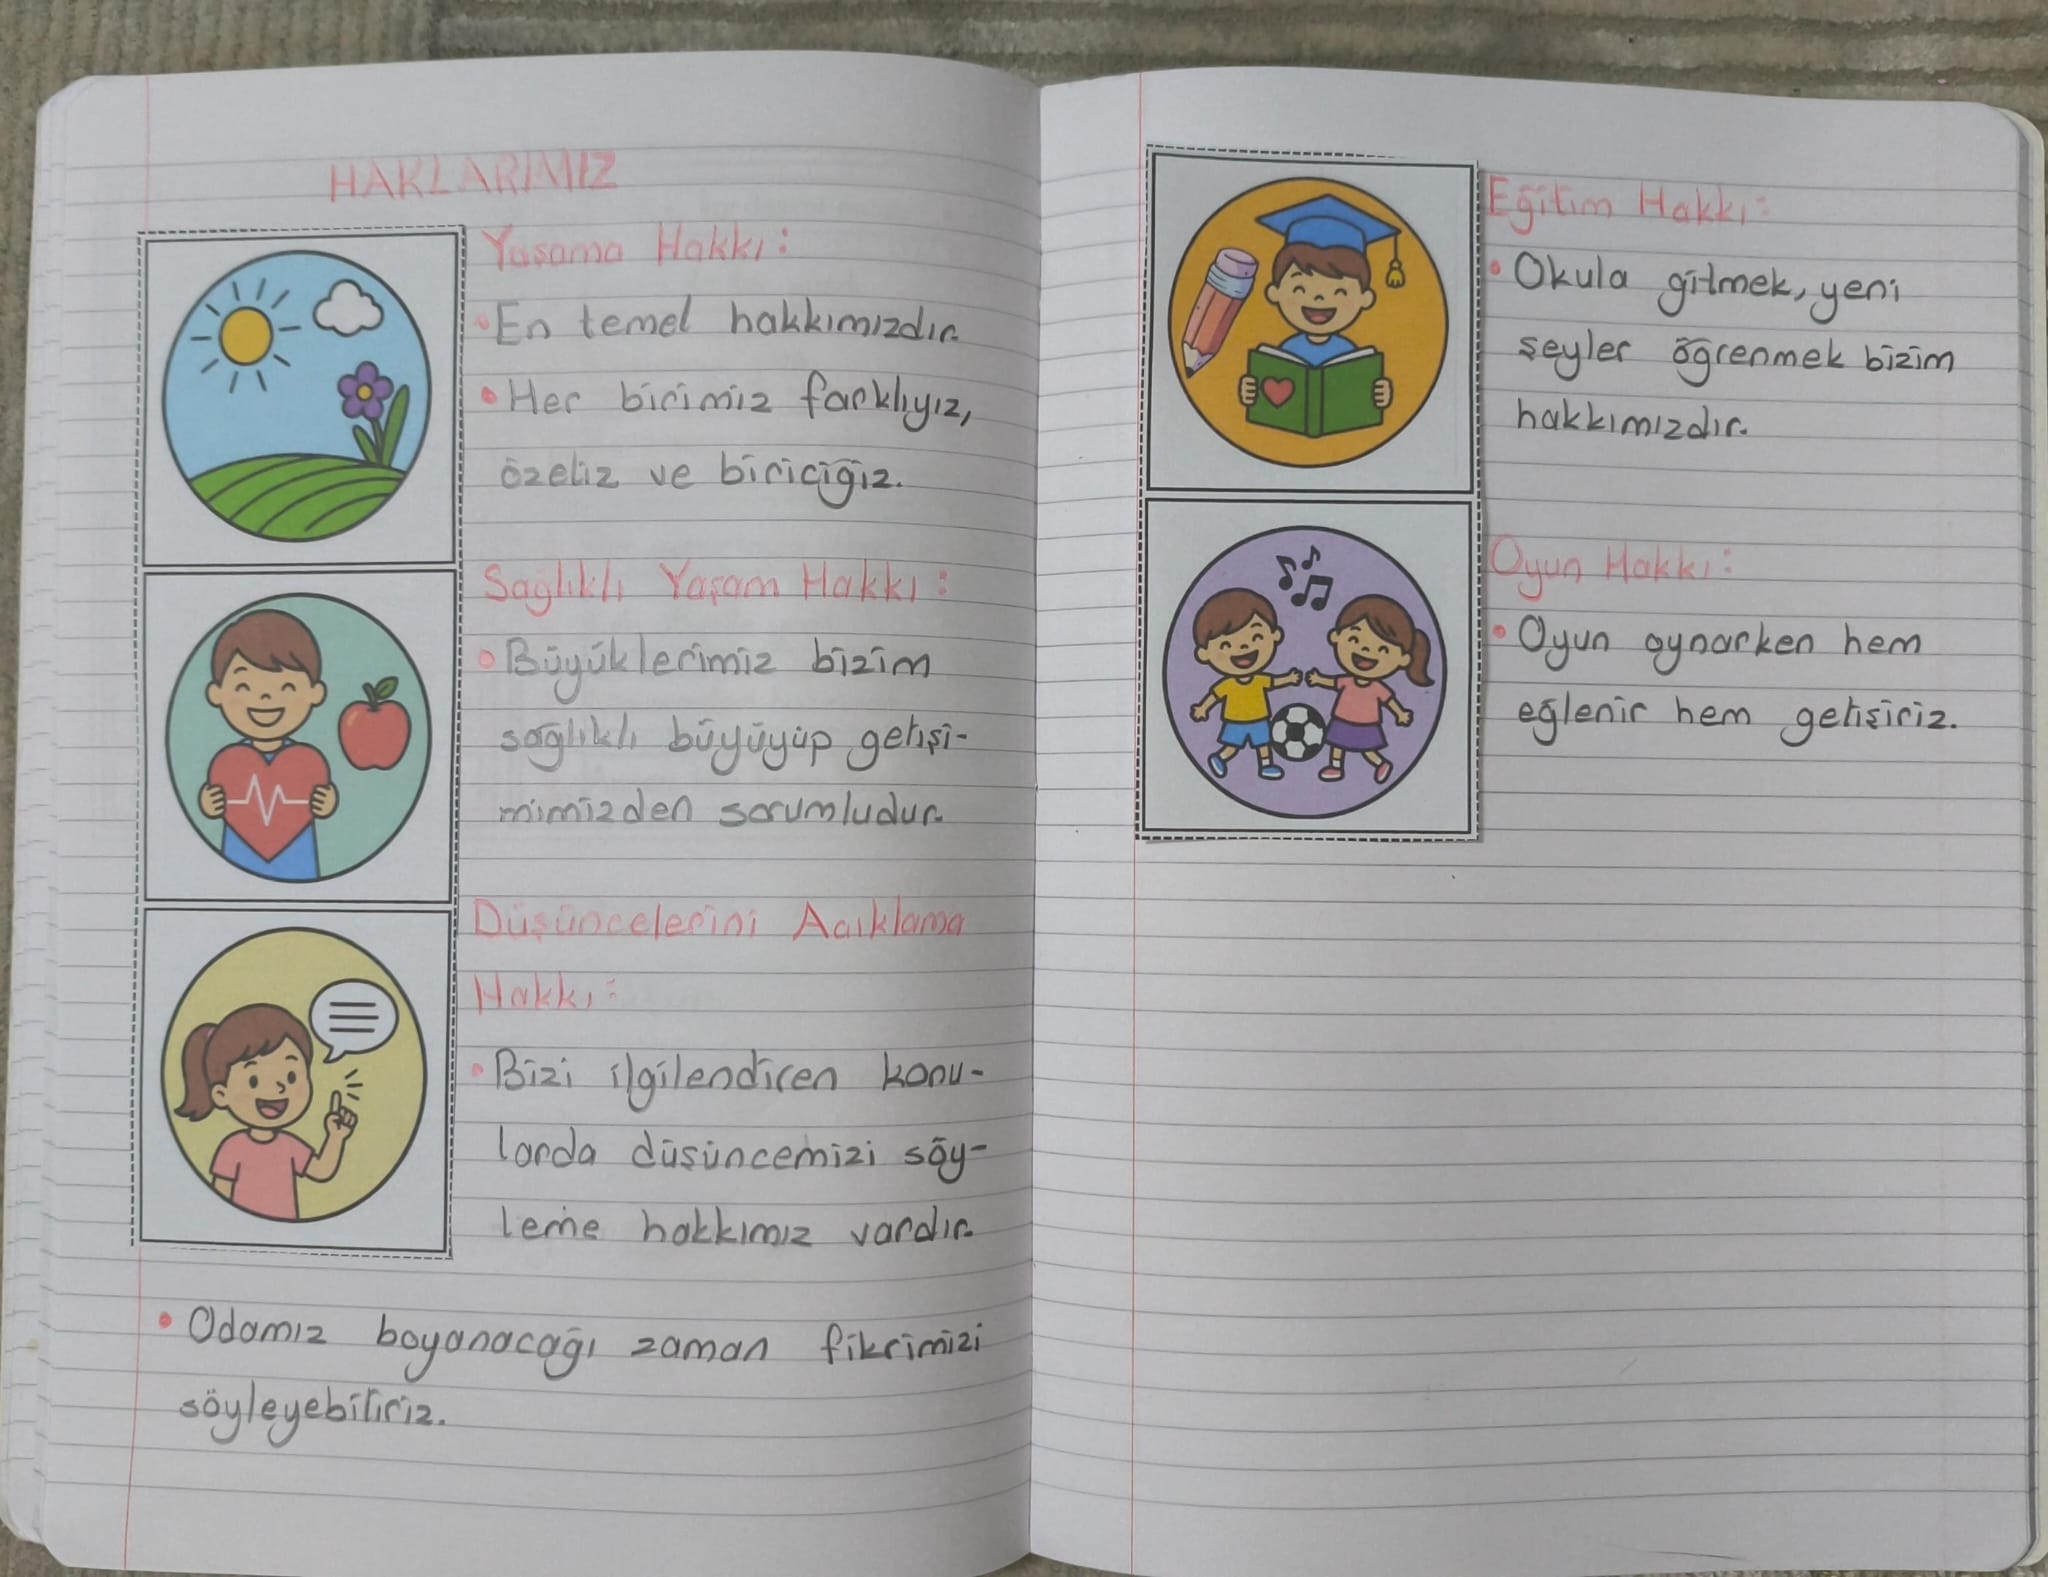 HAKLARIMIZ
Yaşama Hakkı:
• En temel hakkımızdır.
• Her birimiz farklıyız,
özeliz ve biriciğiz.
Sağlıklı Yaşam Hakkı:
• Büyüklerimiz bizim
sağlıklı büyüyüp gelişi-
mimizden sorumludur.
Düşüncelerini Açıklama
Hakkı:
• Bizi ilgilendiren konu-
larda düşüncemizi söy-
leme hakkımız vardır.
• Odamız boyanacağı zaman fikrimizi
söyleyebiliriz.
Eğitim Hakkı:
• Okula gitmek, yeni
şeyler öğrenmek bizim
hakkımızdır.
Oyun Hakkı:
• Oyun oynarken hem
eğlenir hem gelişiriz.